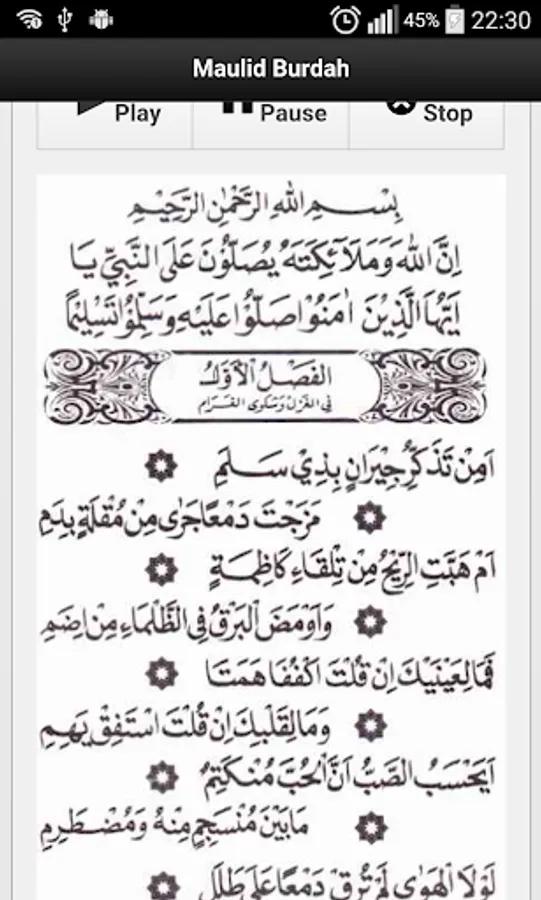 45% 22:30
Maulid Burdah
Play Pause Stop
بِسْمِ اللهِ الرَّحْمٰنِ الرَّحِيْمِ
اِنَّ اللهَ وَمَلَآئِكَتَهُ يُصَلُّوْنَ عَلَى النَّبِيِّ يَا
اَيُّهَا الَّذِيْنَ اٰمَنُوْا صَلُّوْا عَلَيْهِ وَسَلِّمُوْا تَسْلِيْمًا
الفَصْلُ الْاَوَّلُ
فِي الغَزَلِ وَشَكْوَى الغَرَامِ
اَمِنْ تَذَكُّرِ جِيْرَانٍ بِذِيْ سَلَمِ
مَزَجْتَ دَمْعًا جَرٰى مِنْ مُقْلَةٍ بِدَمِ
اَمْ هَبَّتِ الرِّيْحُ مِنْ تِلْقَاءِ كَاظِمَةٍ
وَاَوْمَضَ الْبَرْقُ فِي الظَّلْمَاءِ مِنْ اِضَمِ
فَمَا لِعَيْنَيْكَ اِنْ قُلْتَ اكْفُفَا هَمَتَا
وَمَا لِقَلْبِكَ اِنْ قُلْتَ اسْتَفِقْ يَهِمِ
اَيَحْسَبُ الصَّبُّ اَنَّ الْحُبَّ مُنْكَتِمٌ
مَا بَيْنَ مُنْسَجِمٍ مِنْهُ وَمُضْطَرِمِ
لَوْلَا الْهَوٰى لَمْ تُرِقْ دَمْعًا عَلٰى طَلَلِ